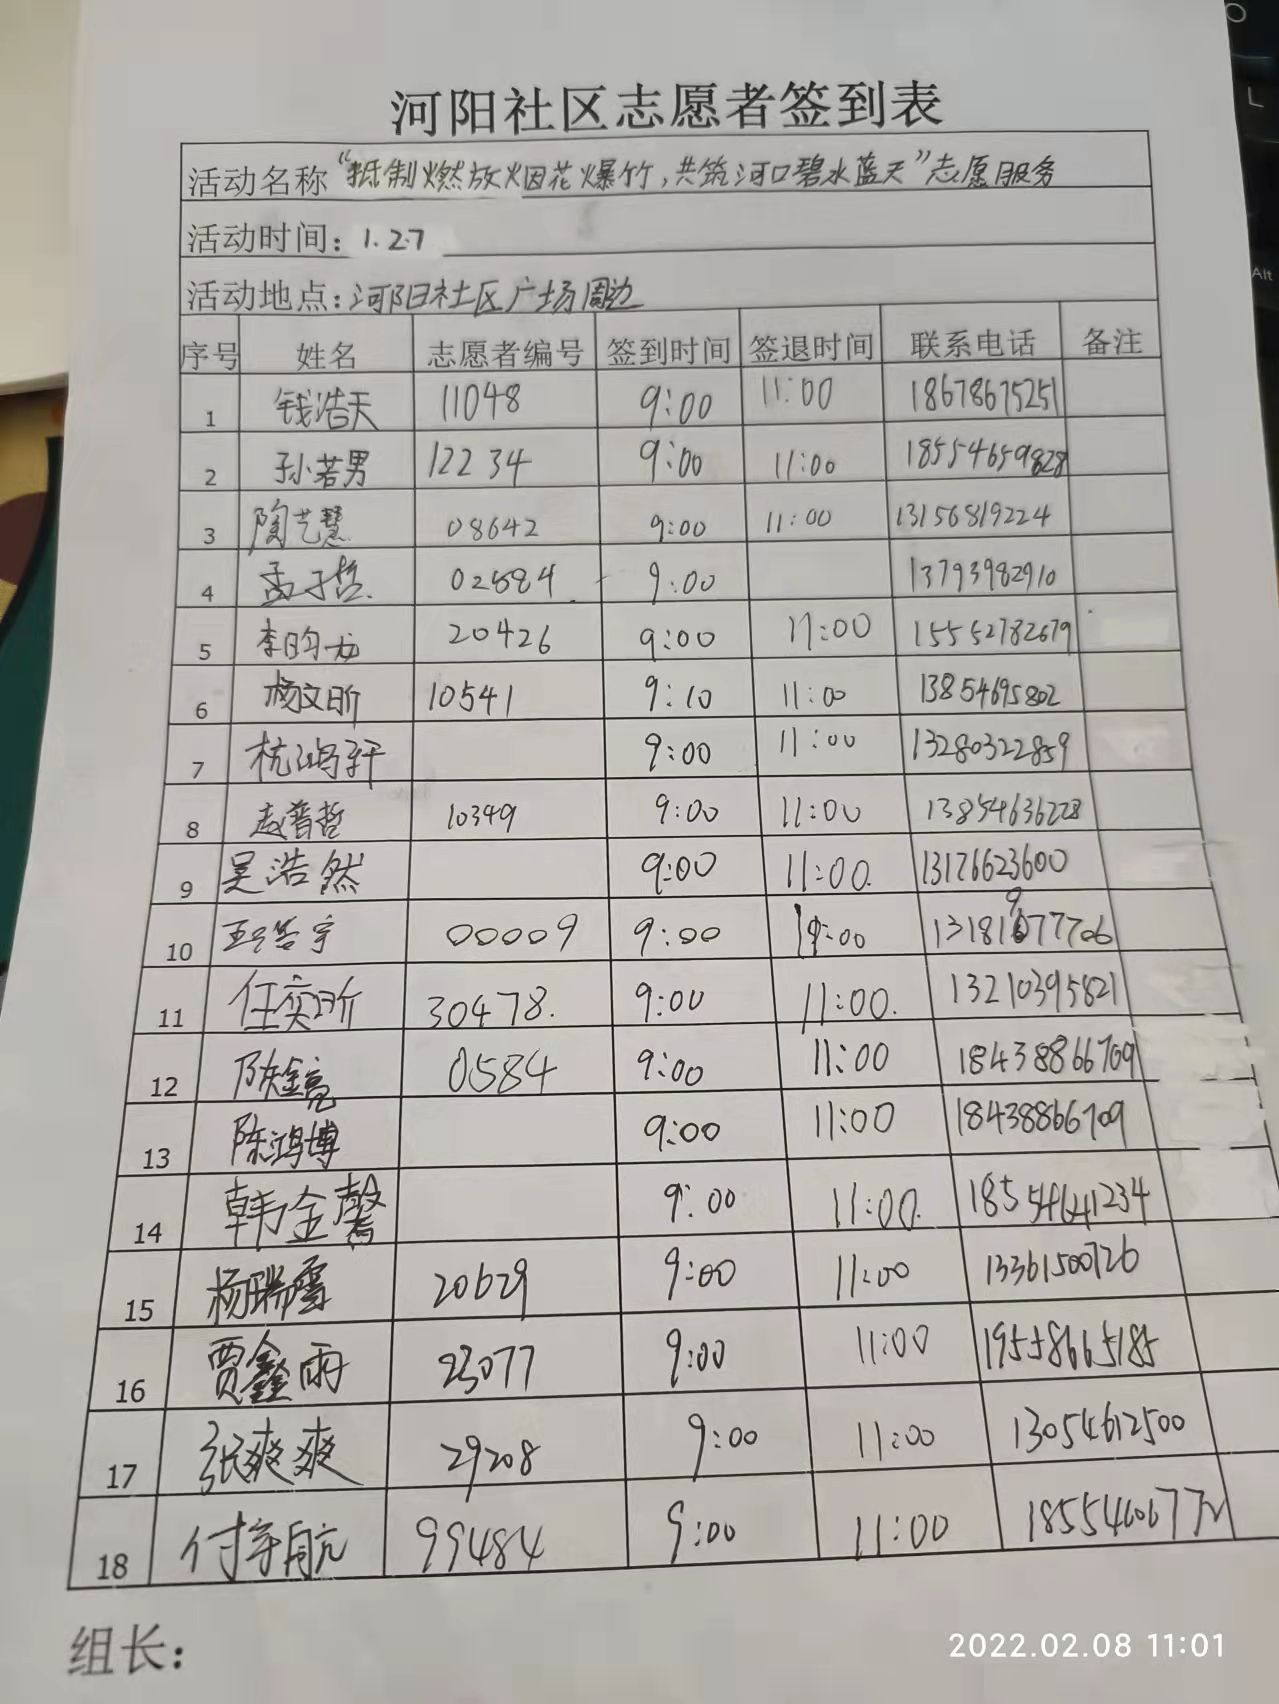 河阳社区志愿者签到表
活动名称“抵制燃放烟花爆竹,共筑河口碧水蓝天”志愿服务
活动时间: 1.27
活动地点:河阳社区广场周边
序号 姓名 志愿者编号 签到时间 签退时间 联系电话 备注
1 钱浩天 11048 9:00 11:00 18678675251
2 孙若男 12234 9:00 11:00 18554659828
3 陶艺慧 08642 9:00 11:00 13156819224
4 孟子哲 02584 9:00 13793982910
5 李昀龙 20426 9:00 11:00 15552782679
6 杨文昕 10541 9:10 11:00 13854695802
7 杭鸿轩 9:00 11:00 13280322859
8 赵普哲 10349 9:00 11:00 13854636228
9 吴浩然 9:00 11:00. 13176623600
10 00009 9:00
11 任奕昕 30478. 9:00 11:00. 13210395821
12 陈锰亮 0584 9:00 11:00 18438866709
13 陈鸿博 9:00 11:00 18438866709
14 韩金馨 9:00 11:00. 18554641234
15 杨瑞雪 20629 9:00 11:00 13361500726
16 贾鑫雨 23077 9:00 11:00 19558665185
17 张爽爽 29208 9:00 11:00 13054612500
18 付宇航 99484 9:00 11:00
组长:
Alt
L
2022.02.08 11:01